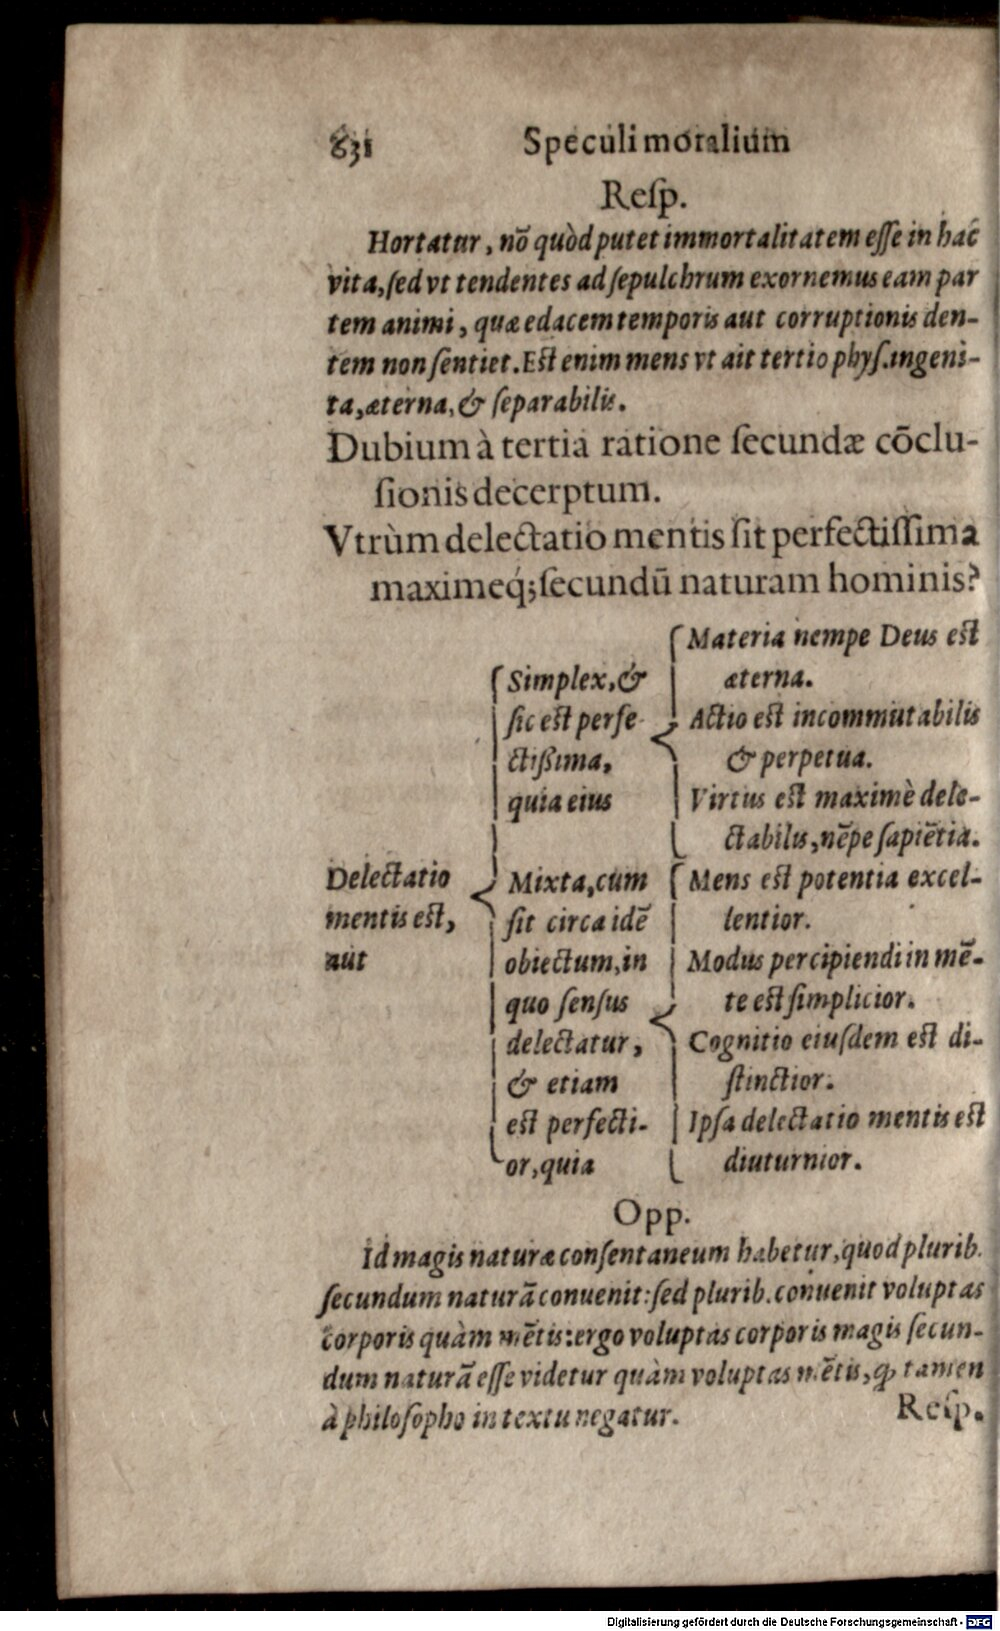 831 Speculi moralium
Resp.
Hortatur, nō quòd putet immortalitatem esse in hac
vita, sed vt tendentes ad sepulchrum exornemus eam par
tem animi, quæ edacem temporis aut corruptionis den-
tem non sentiet. Est enim mens vt ait tertio phys. ingeni-
ta, æterna, & separabilis.
Dubium à tertia ratione secundæ cōclu-
sionis decerptum.
Vtrùm delectatio mentis sit perfectissima
maximeq́; secundū naturam hominis?
Delectatio
mentis est,
aut
Simplex, &
sic est perfe-
ctißima,
quia eius
Materia nempe Deus est
æterna.
Actio est incommutabilis
& perpetua.
Virtus est maximè dele-
ctabilis, nēpe sapiētia.
Mixta, cum
sit circa idē
obiectum, in
quo sensus
delectatur,
& etiam
est perfecti-
or, quia
Mens est potentia excel-
lentior.
Modus percipiendi in mē-
te est simplicior.
Cognitio eiusdem est di-
stinctior.
Ipsa delectatio mentis est
diuturnior.
Opp.
Id magis naturæ consentaneum habetur, quod plurib.
secundum naturā conuenit: sed plurib. conuenit voluptas
corporis quàm mētis: ergo voluptas corporis magis secun-
dum naturā esse videtur quàm voluptas mētis, ꝙ tamen
à philosopho in textu negatur.
Resp.
Digitalisierung gefördert durch die Deutsche Forschungsgemeinschaft - DFG